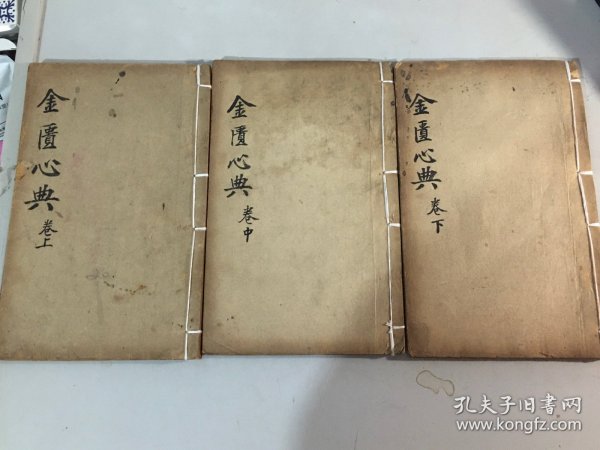 金匱心典
卷上
金匱心典
卷中
金匱心典
卷下
孔夫子旧书网
www.kongfz.com